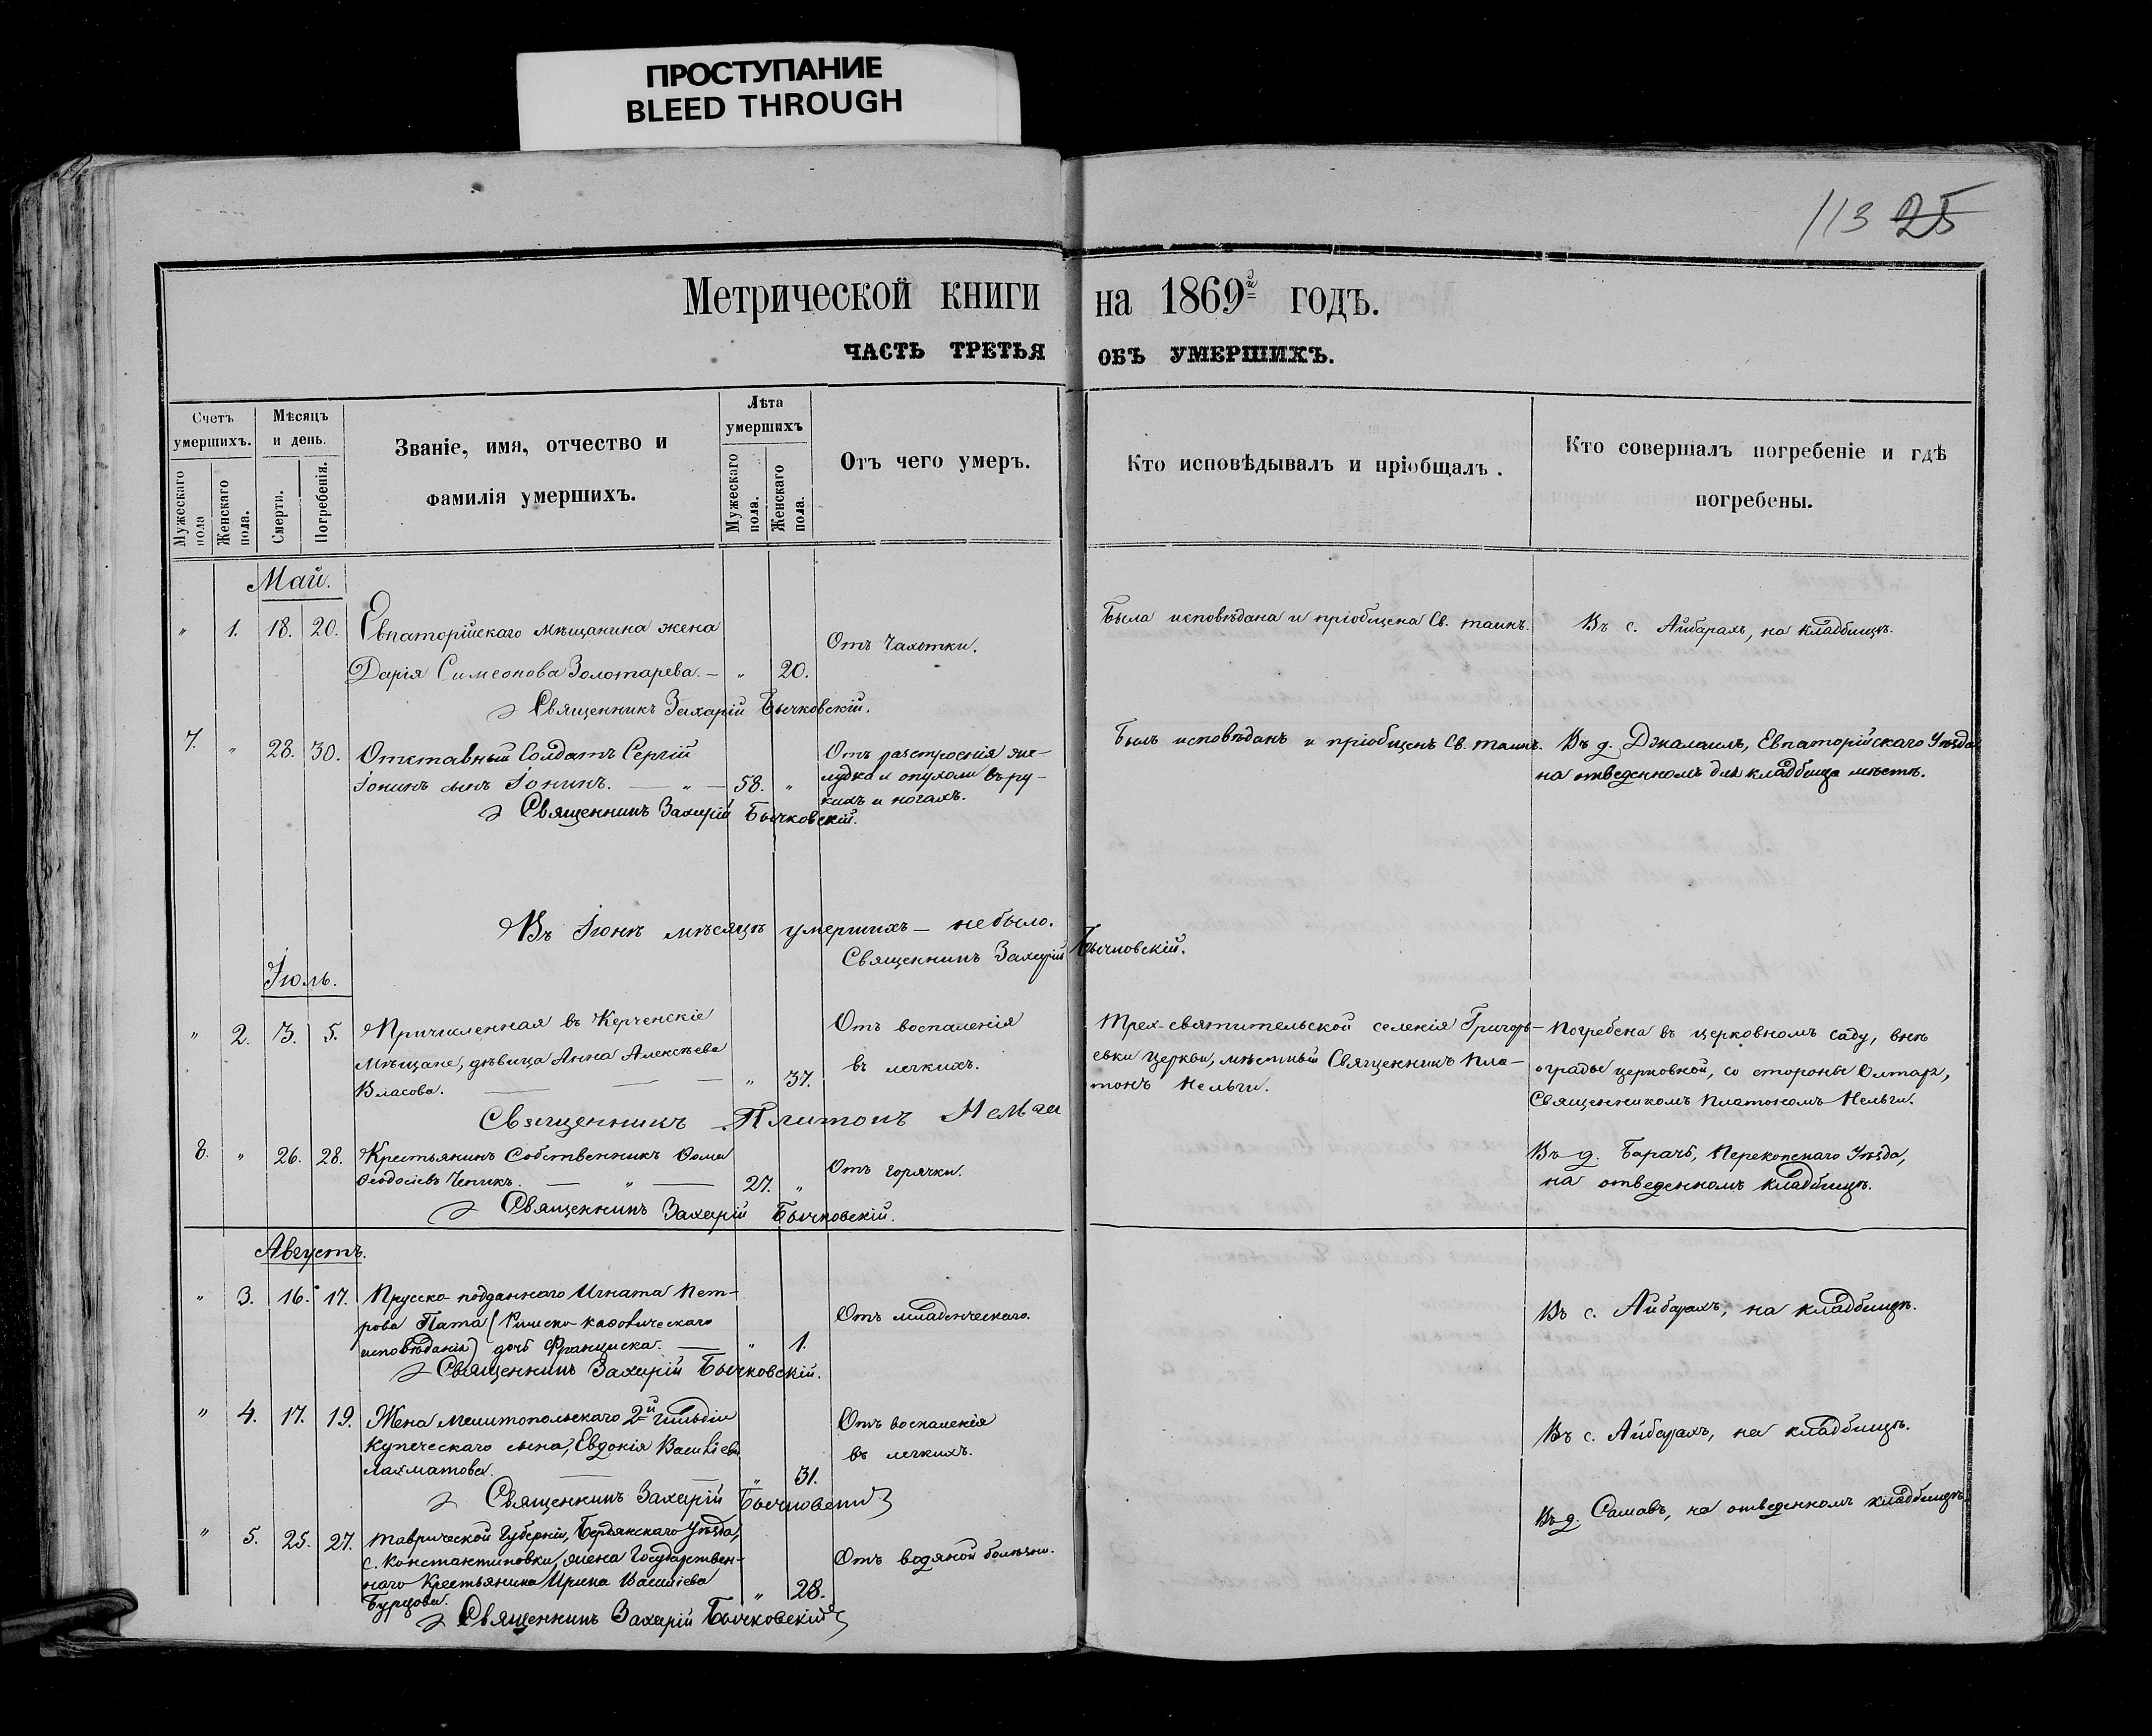 ПРОСТУПАНИЕ
BLEED THROUGH
113 25
Метрической книги на 1869й годъ.
ЧАСТЬ ТРЕТЬЯ ОБЪ УМЕРШИХЪ.
Счетъ умершихъ.
Мужескаго пола
Женскаго пола.
Мѣсяцъ и день.
Смерти.
Погребенія.
Званіе, имя, отчество и
фамилія умершихъ.
Лѣта умершихъ
Мужескаго пола.
Женскаго пола.
Отъ чего умеръ.
Кто исповѣдывалъ и пріобщалъ.
Кто совершалъ погребеніе и гдѣ
погребены.
Май.
" 1. 18. 20. Евпаторійскаго мѣщанина жена
Дарія Симеонова Золотарева. — " 20.
Отъ Чахотки.
Была исповѣдана и пріобщена Св. таинъ.
Въ с. Айбарахъ, на кладбищѣ.
Священникъ Захарій Бычковскій.
7. " 28. 30. Отставный Солдатъ Сергій
Іонинъ сынъ Іонинъ. — " — 58. "
Отъ разстроенія же-
лудка и опухоли въ ру-
кахъ и ногахъ.
Былъ исповѣданъ и пріобщенъ Св. таинъ.
Въ д. Джалаилъ, Евпаторійскаго Уѣзда
на отведенномъ для кладбища мѣстѣ.
Священникъ Захарій Бычковскій.
Въ Іюнѣ мѣсяцѣ умершихъ — небыло.
Священникъ Захарій Бычковскій.
Іюль.
" 2. 3. 5. Причисленная въ Керченскіе
Мѣщане, дѣвица Анна Алексѣева
Власова. — — — " 37.
Отъ воспаленія
въ легкихъ.
Трех-святительской селенія Григорь-
евки Церкви, мѣстный Священникъ Пла-
тонъ Нельги.
Погребена въ церковномъ саду, внѣ
ограды церковной, со стороны Олтаря,
Священникомъ Платономъ Нельги.
Священникъ Платонъ Нельги
8. " 26. 28. Крестьянинъ Собственникъ Ѳома
Ѳеодосіевъ Чепикъ. — " — 27. "
Отъ горячки.
Въ д. Барачъ, Перекопскаго Уѣзда,
на отведенномъ кладбищѣ.
Священникъ Захарій Бычковскій.
Августъ.
" 3. 16. 17. Прусско-подданнаго Игната Пет-
рова Пата (Римско-каѳолическаго
исповѣданія) дочь Франциска. — " 1.
Отъ младенческаго.
Въ с. Айбарахъ, на кладбищѣ.
Священникъ Захарій Бычковскій.
" 4. 17. 19. Жена Мелитопольскаго 2й гильдіи
Купеческаго сына, Евдокія Васильева
Лахматова. — — " 31.
Отъ воспаленія
въ легкихъ.
Въ с. Айбарахъ, на кладбищѣ.
Священникъ Захарій Бычковскій
" 5. 25. 27. Таврической Губерніи, Бердянскаго Уѣзда,
с. Константиновки, жена Государствен-
наго Крестьянина Ирина Васильева
Бурцова. " 28.
Отъ водяной болѣзни.
Въ д. Самавъ, на отведенномъ кладбищѣ.
Священникъ Захарій Бычковскій